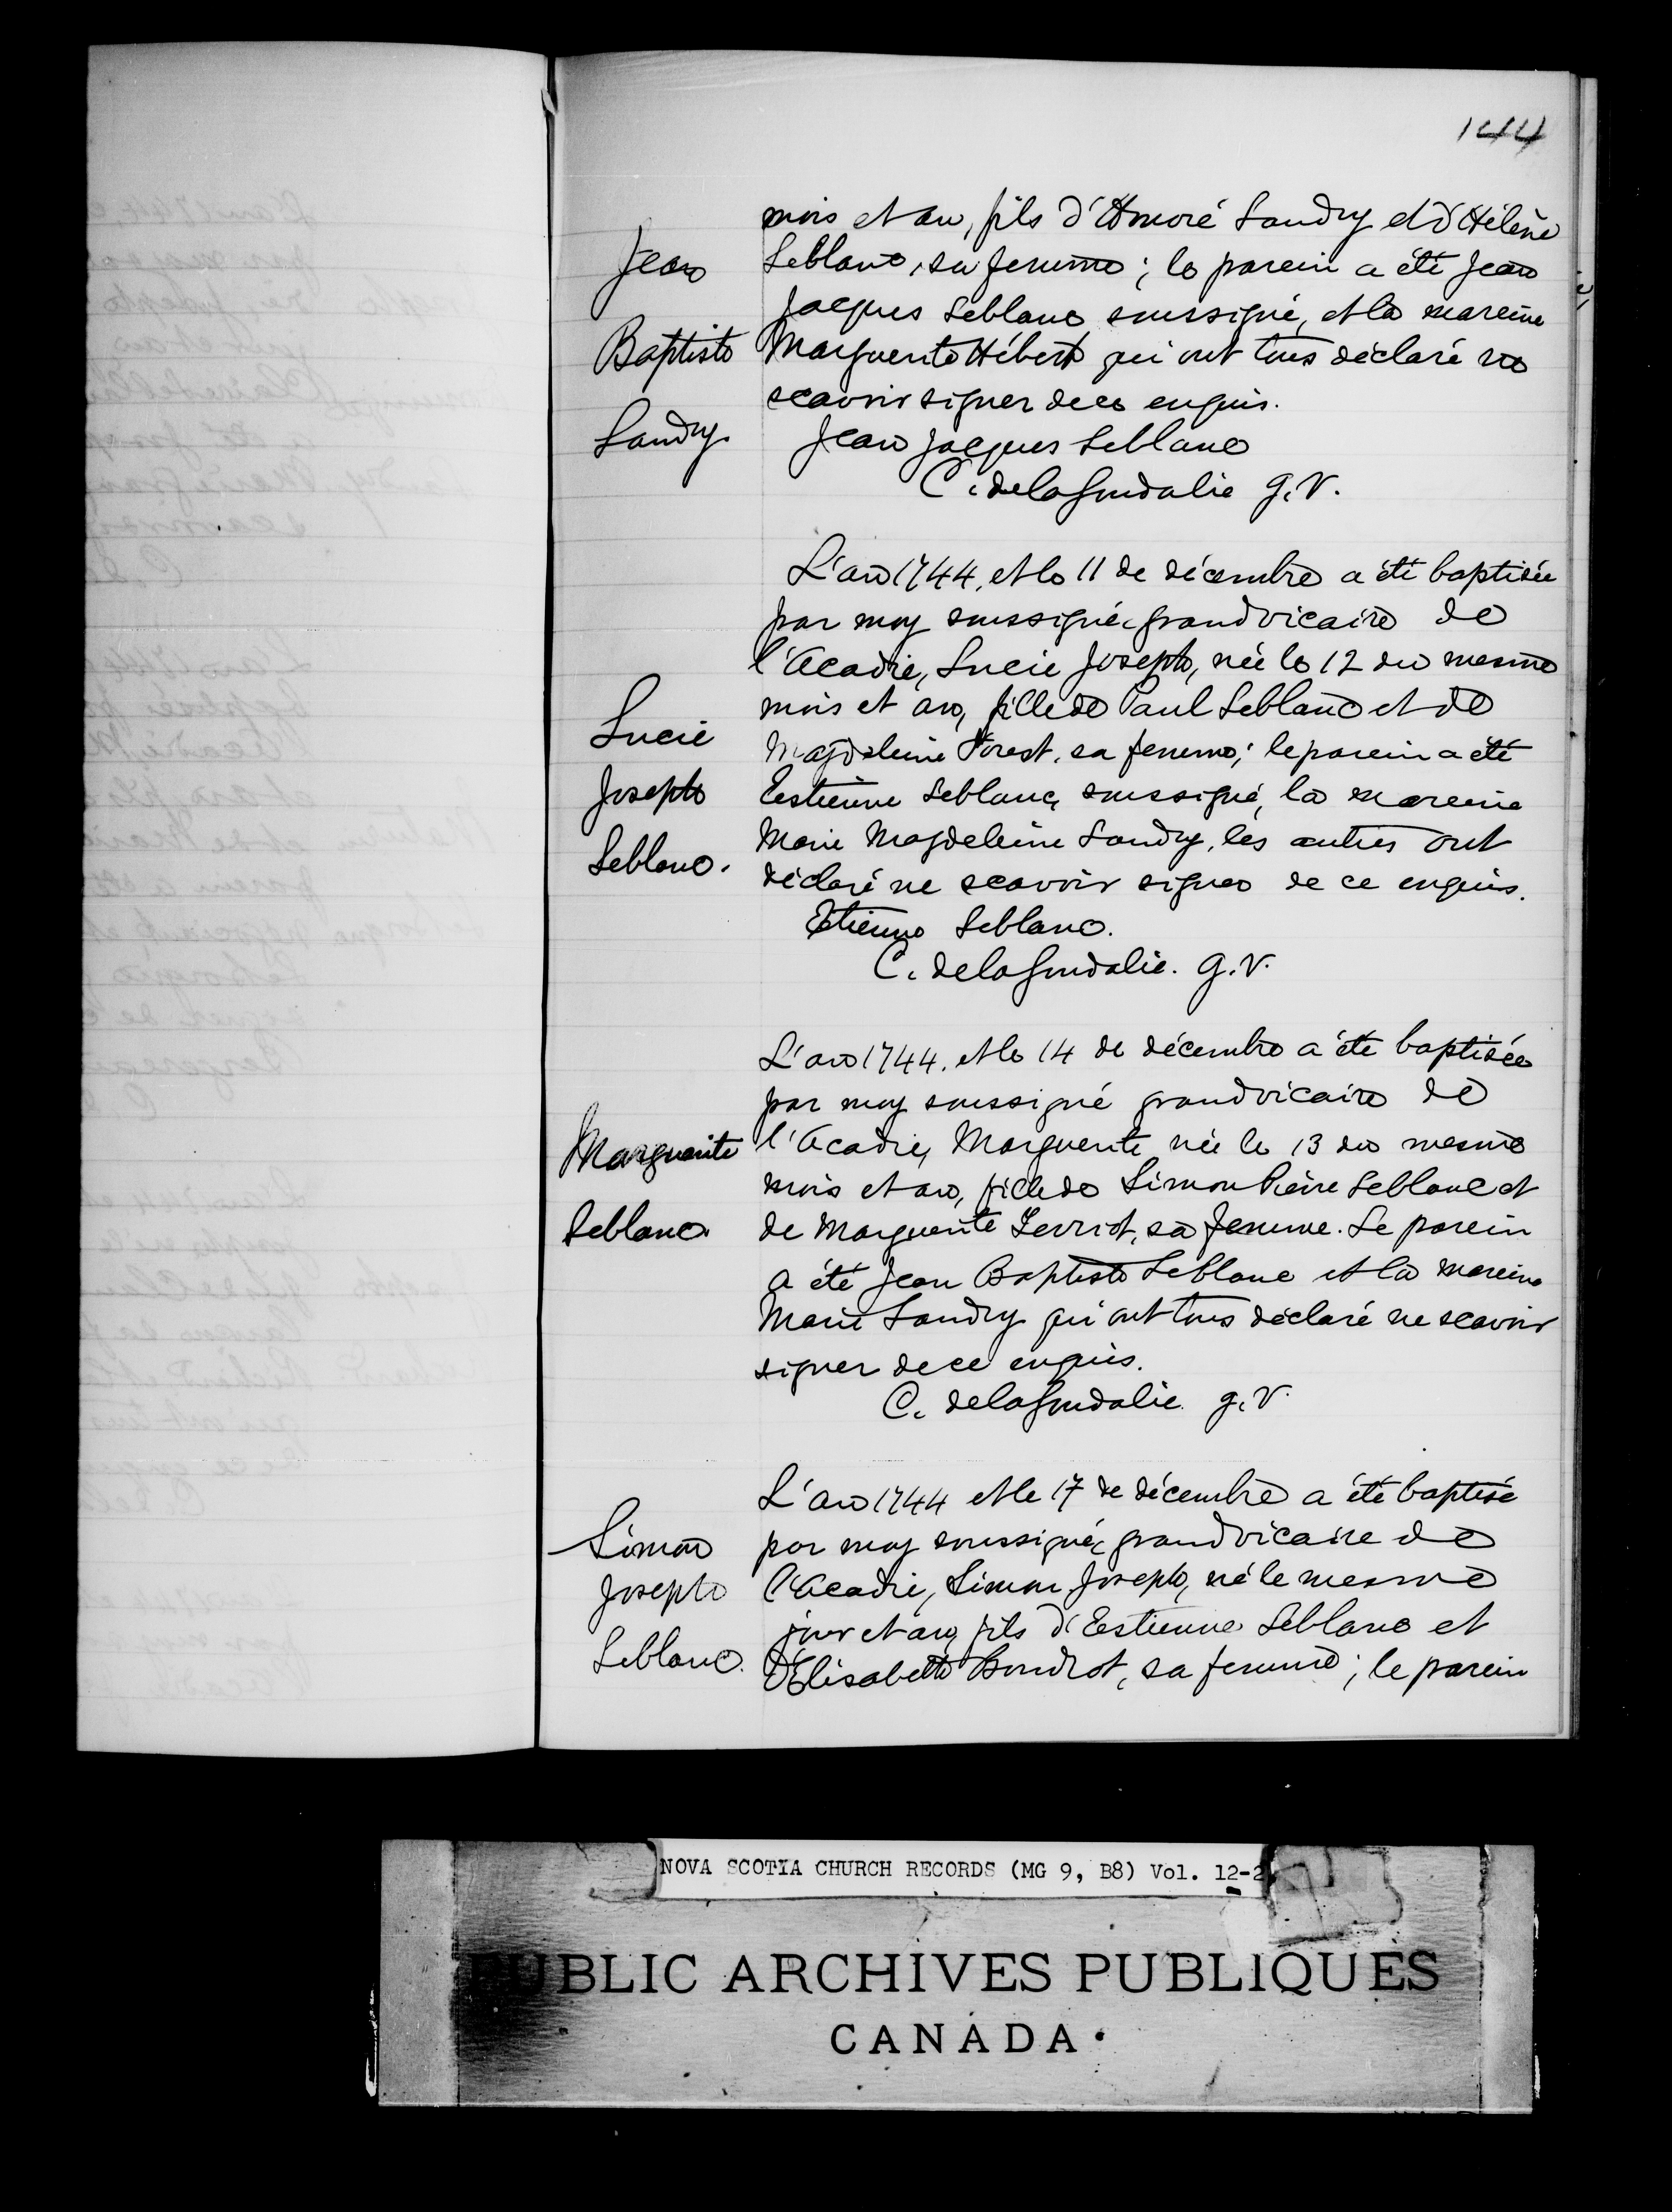 144
mois et an, fils d'Honoré Landry et d'Hélène
Jean
Leblanc, sa femme; le parein a été Jean
Jacques Leblanc soussigné, et la mareine
Baptiste
Marguerite Hébert qui ont tous déclaré ne
scavoir signer de ce enquis.
Landry.
Jean Jacques Leblanc
C. de la Goudalie g. v.
L'an 1744, et le 11 de décembre a été baptisée
par moy soussigné, grand vicaire de
l'Acadie, Lucie Joseph, née le 12 du mesme
Lucie
mois et an, fille de Paul Leblanc et de
Magdeleine Forest, sa femme; le parein a été
Joseph
Estienne Leblanc, soussigné, la mareine
Leblanc.
Marie Magdeleine Landry, les autres ont
déclaré ne scavoir signer de ce enquis.
Etienne Leblanc.
C. de la Goudalie. g. v.
L'an 1744. et le 14 de décembre a été baptisée
par moy soussigné grand vicaire de
Marguerite
l'Acadie, Marguerite née le 13 du mesme
mois et an, fille de Simon Pierre Leblanc et
Leblanc.
de Marguerite Terriot, sa femme. Le parein
a été Jean Baptiste Leblanc et la mareine
Marie Landry qui ont tous déclaré ne scavoir
signer de ce enquis.
C. de la Goudalie. g. v.
L'an 1744 et le 17 de décembre a été baptisé
Simon
par moy soussigné, grand vicaire de
Joseph
l'Acadie, Simon Joseph, né le mesme
jour et an, fils d'Estienne Leblanc et
Leblanc.
d'Elisabeth Boudrot, sa femme; le parein
NOVA SCOTIA CHURCH RECORDS (MG 9, B8) Vol. 12-2
PUBLIC ARCHIVES PUBLIQUES
CANADA